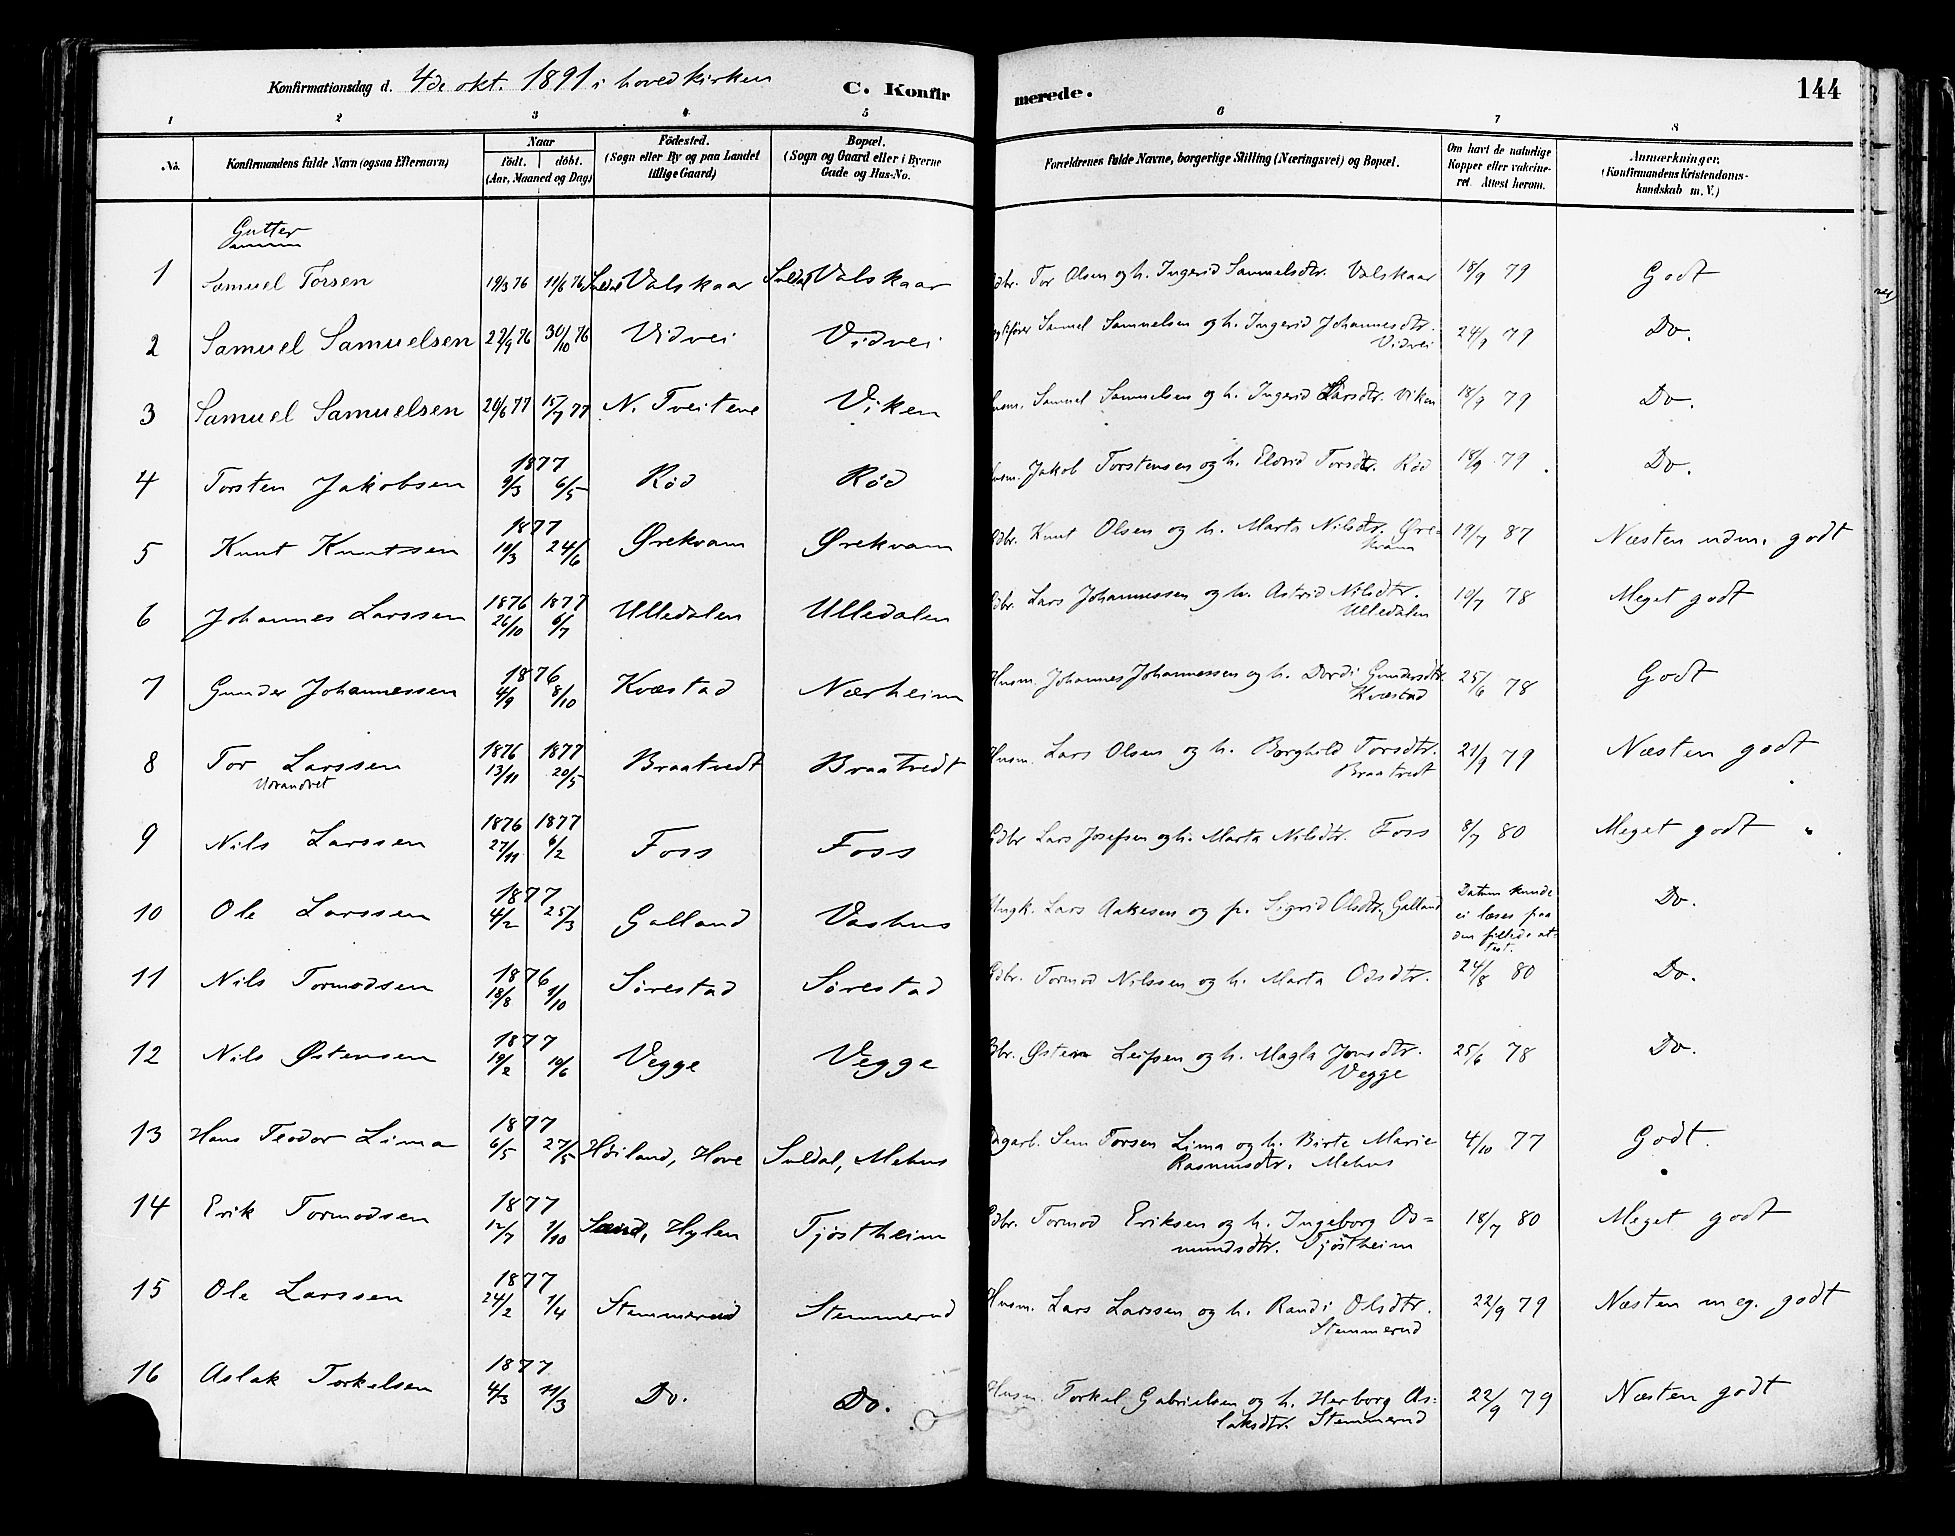 Konfirmationsdag d. 4de okt. 1891 i hovedkirken C. Konfirmerede. 144
1 2 3 4 5 6 7 8
No. Konfirmandens fulde Navn (ogsaa Efternavn) Naar født. døbt. (Aar, Maaned og Dag) Fødested. (Sogn eller By og paa Landet tillige Gaard) Bopæl. (Sogn og Gaard eller i Byerne Gade og Hus-No. Forældrenes fulde Navne, borgerlige Stilling (Næringsvei) og Bopæl. Om havt de naturlige Kopper eller vakcineret. Attest herom. Anmærkninger. (Konfirmandens Kristendomskundskab m. V.)
Gutter
1 Samuel Torsen 19/3 76 11/6 76 Suldal Valskaar Suldal Valskaar Gdbr. Tor Olsen og h. Ingerid Samuelsdtr. Valskaar 18/9 79 Godt
2 Samuel Samuelsen 22/9 76 30/10 76 Vidvei Vidvei Samuel Samuelsen og h. Ingerid Johannesdtr. Vidvei 24/9 79 Do.
3 Samuel Samuelsen 20/6 77 15/7 77 N. Tveitene Viken Husm. Samuel Samuelsen og h. Ingerid Larsdtr. Viken 18/9 79 Do.
4 Torsten Jakobsen 1877 9/3 6/5 Rød Rød Husm. Jakob Torstensen og h. Eldrid Torsdtr. Rød 18/9 79. Do.
5 Knut Knutsen 1877 19/3 24/6 Ørekvam Ørekvam Gdbr. Knut Olsen og h. Marta Nilsdtr. Ørekvam 19/7 87 Næsten udm. godt
6 Johannes Larssen 1876 26/10 1877 6/7 Ulledalen Ulledalen Gdbr. Lars Johannessen og h. Astrid Nilsdtr. Ulledalen 10/7 78 Meget godt
7 Gunder Johannessen 1876 4/9 8/10 Kvæstad Nærheim Husm. Johannes Johannessen og h. Dordi Gundersdtr. Kvæstad 25/6 78 Godt
8 Tor Larssen 1876 13/11 1877 20/5 Braatvedt Braatvedt Husm. Lars Olsen og h. Borghild Torsdtr. Braatvedt 21/9 79 Næsten godt
9 Nils Larssen 1876 27/11 1877 6/2 Foss Foss Gdbr Lars Josefsen og h. Marta Nilsdtr. Foss 8/7 80 Meget godt
10 Ole Larssen 1877 4/2 25/3 Galland Vashus Ungk. Lars Aakesen og p. Sigrid Olsdtr, Galland Datum kunde ei læses paa den attest. Do.
11 Nils Tormodsen 1876 18/8 1/10 Sørestad Sørestad Gdbr. Tormod Nilssen og h. Marta Odsdtr. 24/8 80 Do.
12 Nils Østensen 1877 19/2 10/6 Vegge Vegge Østen Leifsen og h. Magla Jonsdtr. Vegge 25/6 78 Do.
13 Hans Teodor Lima 1877 6/5 27/5 Høiland, Hove Suldal, Mehus Sem Torsen Lima og h. Birte Marie Rasmusdtr. Mehus 4/10 77 Godt.
14 Erik Tormodsen 1877 12/7 Sand, Hylen Tjøstheim Gdbr. Tormod Eriksen og h. Ingeborg Osmundsdtr. Tjøstheim 18/7 80 Meget godt
15 Ole Larssen 1877 24/2 1/4 Stemmerud Stemmerud Husm. Lars Larssen og h. Randi Olsdtr. Stemmerud 22/9 79 Næsten meg. godt
16 Aslak Torkelsen 1877 4/3 11/3 Do. Do. Husm. Torkel Gabrielsen og h. Herborg Aslaksdtr. Stemmerud 22/9 79 Næsten godt